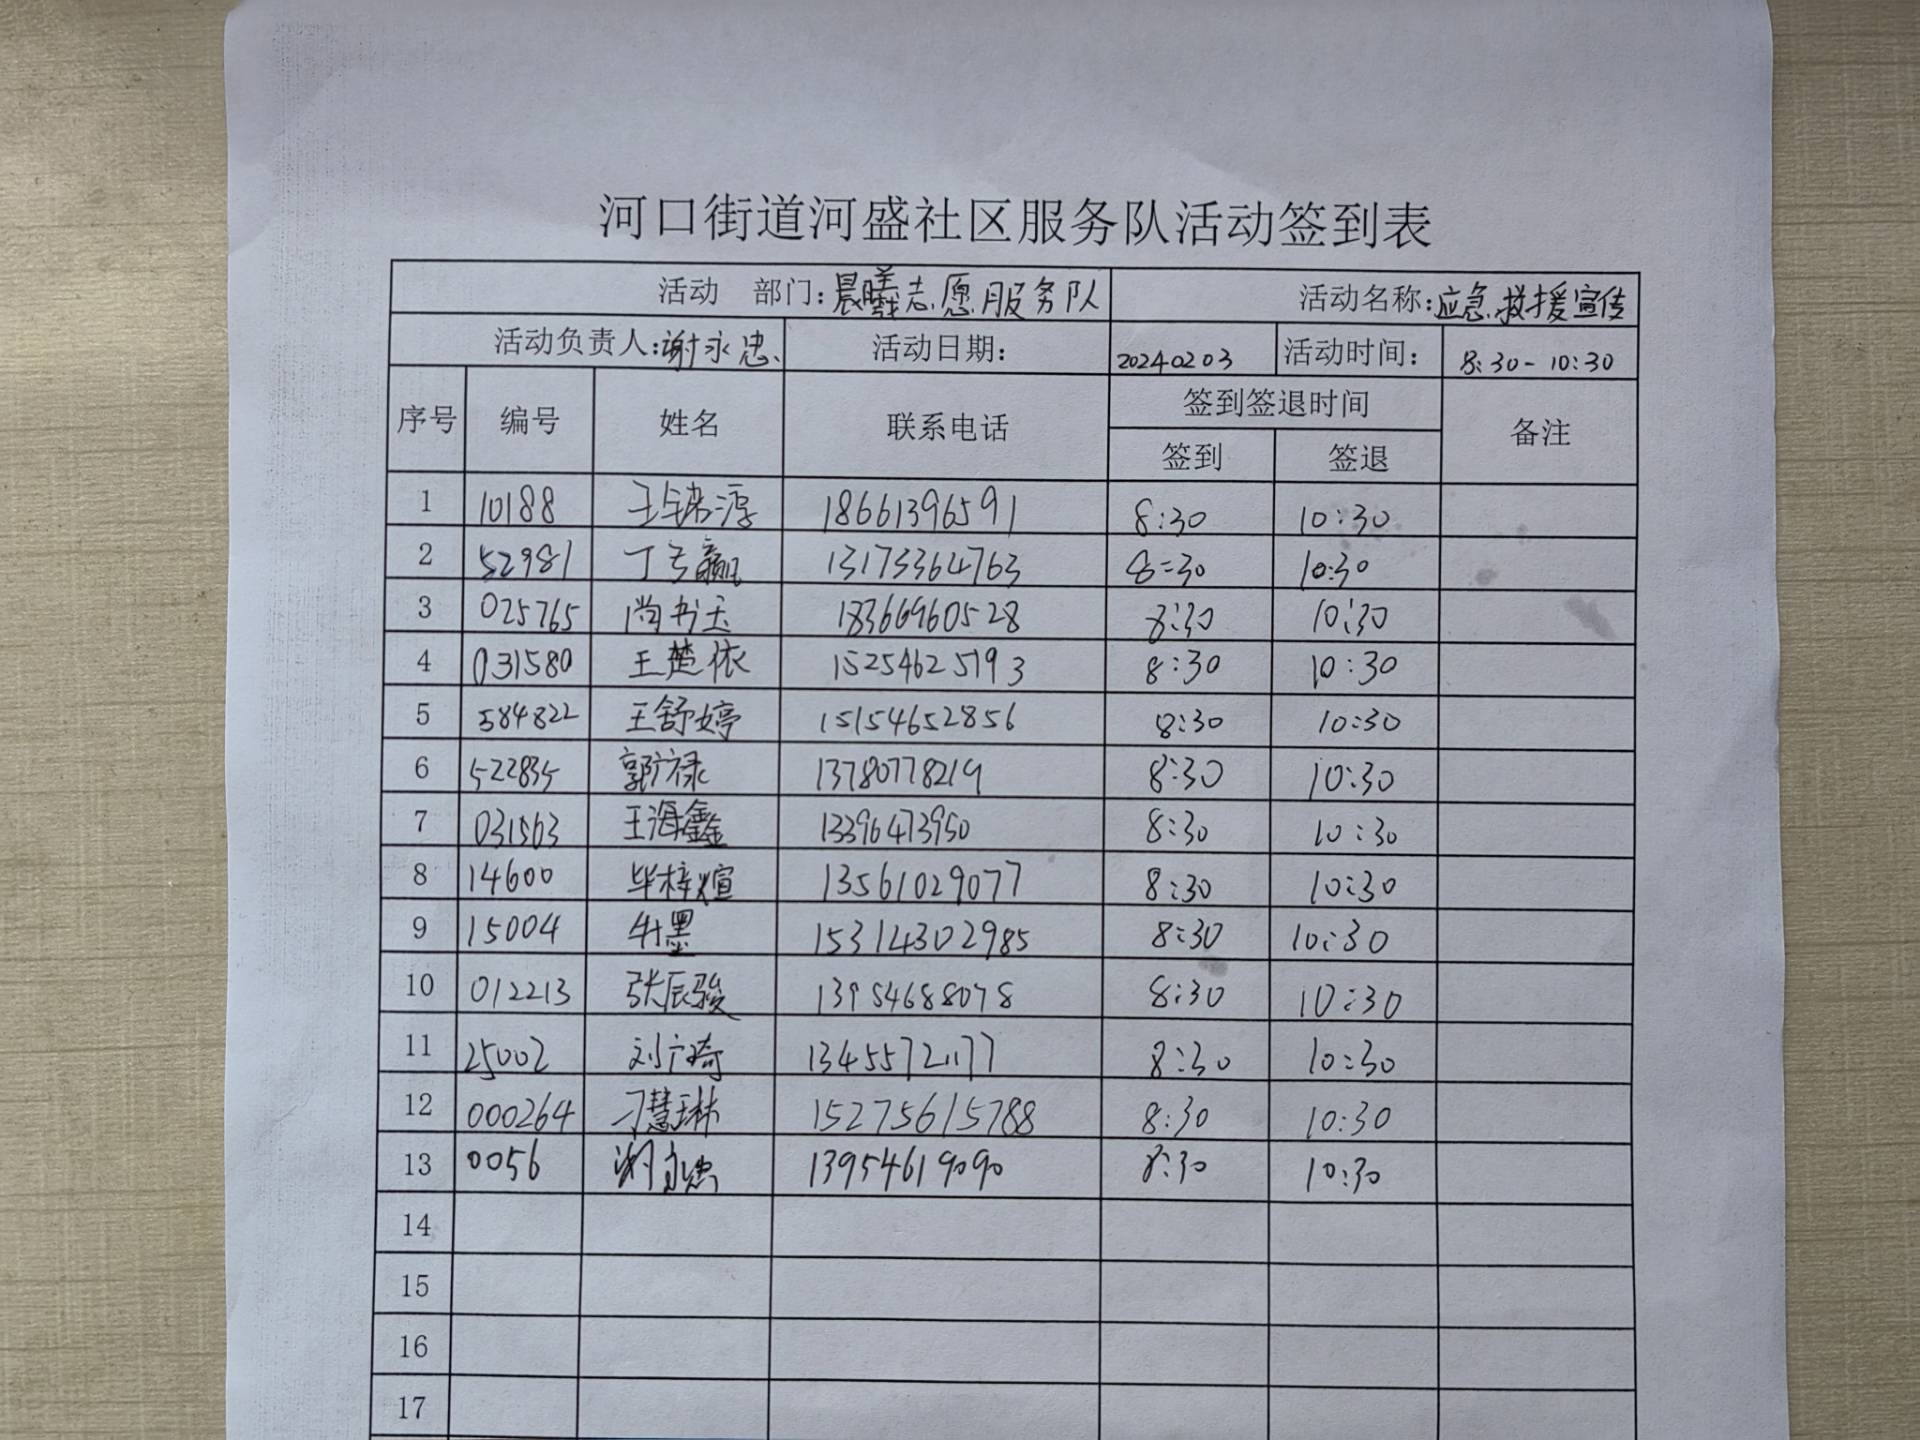 河口街道河盛社区服务队活动签到表
活动 部门:晨曦志愿服务队 活动名称:应急救援宣传
活动负责人:谢永忠 活动日期: 20240203 活动时间: 8:30-10:30
序号 编号 姓名 联系电话 签到签退时间 备注
签到 签退
1 10188 王锑淳 18661396591 8:30 10:30
2 52981 丁号赢 13173364763 8:30 10:30
3 025765 尚书玉 18366960528 8:30 10:30
4 031580 王楚依 15254625193 8:30 10:30
5 584822 王舒婷 15154652856 8:30 10:30
6 522835 郭广禄 13780778219 8:30 10:30
7 031563 王海鑫 13396473950 8:30 10:30
8 14600 毕梓煊 13561029077 8:30 10:30
9 15004 牛墨 15314302985 8:30 10:30
10 012213 张辰骏 13954688078 8:30 10:30
11 25002 刘广琦 13455721177 8:30 10:30
12 000264 刁慧琳 15275615788 8:30 10:30
13 0056 谢永忠 13954619090 8:30 10:30
14
15
16
17